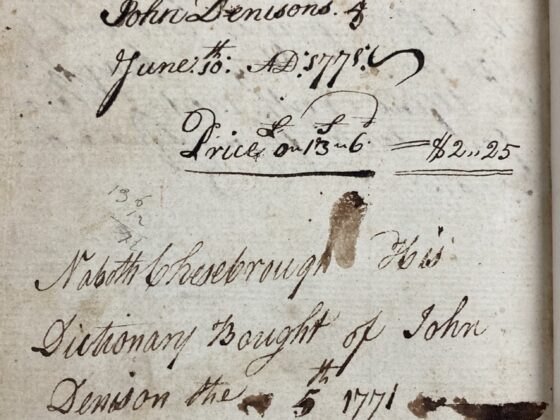 John Denisons.
June. 10th: AD: 1771:
£ S d
Price 0 ,, 13 ,, 6 = $2,,25
13 6
12
Naboth Chesebrough His
Dictionary Bought of John
Denison the 5th 1771